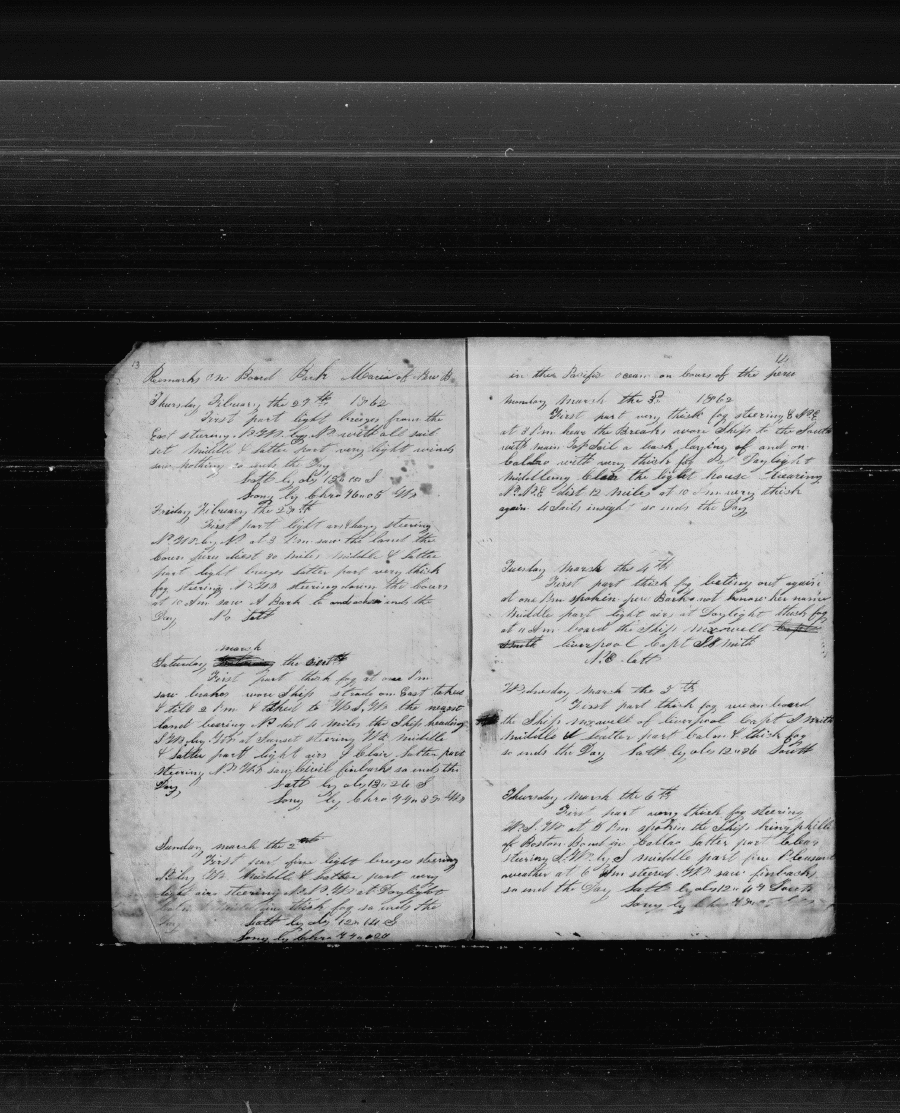 13
Remarks on Board Bark Maria of New B.
Thursday Febuary the 27th 1862
First part light breezes from the
East stearing N W by N with all sail
set middle & latter part very light winds
saw nothing so ends the Day
Latt by obs 13 10 S
Long by Chro 76 05 W
Friday Febuary the 28th
First part light airs stering
N W by N at 3 P.m saw the land the
bears dist 30 miles middle & latter
part light breezes latter part very thick
fog stering N W stering down the
at 10 A.m saw A Bark ends the
Day No Latt
march
Saturday the
First part thick fog at one P.m
saw brakes wore Ship strade on East taked
& till 2 P.m & taked to W S W the nearest
land bearing N dist 4 miles the Ship heading
S W by W at Sunset stering W middle
& latter part light airs & Clair latter part
stering N W saw finbacks so ends the
Day Latt by obs 13 26 S
Long by Chro 77 37 W
Sunday march the 2nd
First part fine light breezes stering
N by W middle & latter part very
light airs steering N N W at Daylight
thick fog so ends the
Day Latt by obs 12 14 S
Long by Chro 77
14
in ther Pacific ocean on bours of the peru
monday march the 3d 1862
First part very thick fog steering
at 3 P.m hear the Breaks wore Ship to the South
with main top Sail a back laying of and on
Callao with very thick fog Daylight
middeling Clair the light house bearing
N N E dist 12 miles at 10 A.m very thick
again 4 Sails insight so ends the Day
Tuesday march the 4th
First part thick fog beting out again
at one P.m spoken peru Bark not know her name
middle part light airs at Daylight thick fog
at 11 A.m board the Ship
liverpool Capt S Smith
No latt
Wednesday march the 5th
First part thick fog we on board
the Ship of liverpool Capt S Smith
middle & latter part Calm & thick fog
so ends the Day Latt by obs 12 26 South
Thursday march the 6th
First part very thick fog steering
W S W at 3 P.m spoken the Ship
of Boston Bound in Callao latter part Clear
stering S W by S middle part fine Pleasant
weather at 6 A.m steared W saw finbacks
so end the Day Latt by obs 12 47 South
Long by Chro